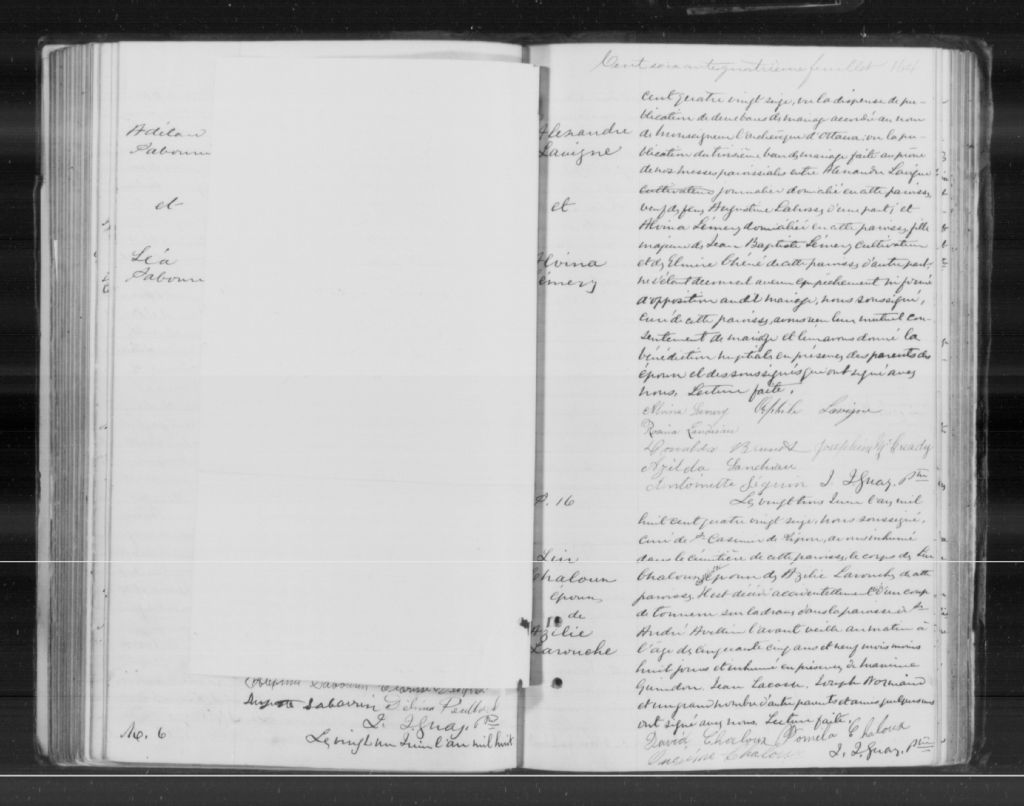 Adélard
Sabourin
et
Léa
Sabourin
Sabourin
Augusta Sabourin Délima
J. J. Guay. Ptre
M. 6
Le vingt un Juin l'an mil huit
Cent soixante quatrième feuillet 164
Alexandre
Lavigne
et
Alvina
Émery
cent quatre vingt seize, vu la dispense de pu-
blication de deux bans de mariage accordée au nom
de Monseigneur l'archevêque d'Ottawa: vu la pu-
blication du troisième ban de mariage faite au prône
de nos messes paroissiales entre Alexandre Lavigne
journalier domicilié en cette paroisse,
veuf de feue Augustine Labrosse d'une part; et
Alvina Émery domiciliée en cette paroisse, fille
majeure de Jean Baptiste Émery cultivateur
et de Elmire Chéné de cette paroisse d'autre part;
ne s'étant découvert aucun empêchement ni formé
d'opposition audit mariage, nous soussigné,
curé de cette paroisse, avons reçu leur mutuel con-
sentement de mariage et leur avons donné la
bénédiction nuptiale en présence des parents des
époux et des soussignés qui ont signé avec
nous. Lecture faite.
Alvina Emery Lavigne
Rosina
Brunet McCready
Azilda
Antoinette Séguin J. J. Guay. Ptre
S. 16
Chaloux
époux
de
Azélie
Larouche
Le vingt trois Juin l'an mil
huit cent quatre vingt seize, nous soussigné,
curé de St. Casimir de Ripon, avons inhumé
dans le cimetière de cette paroisse, le corps de
Chaloux époux de Azélie Larouche de cette
paroisse. Il est décédé accidentellement d'un coup
de tonnerre dans la paroisse de St.
André Avellin l'avant veille au matin à
l'âge de cinquante cinq ans et neuf mois moins
huit jours et inhumé en présence de Maxime
Guindon, Jean Lacasse, Joseph Normand
et un grand nombre d'autres parents et amis quelques uns
ont signé avec nous. Lecture faite.
David Chaloux Pomela Chaloux
Onésime Chaloux J. J. Guay. Ptre